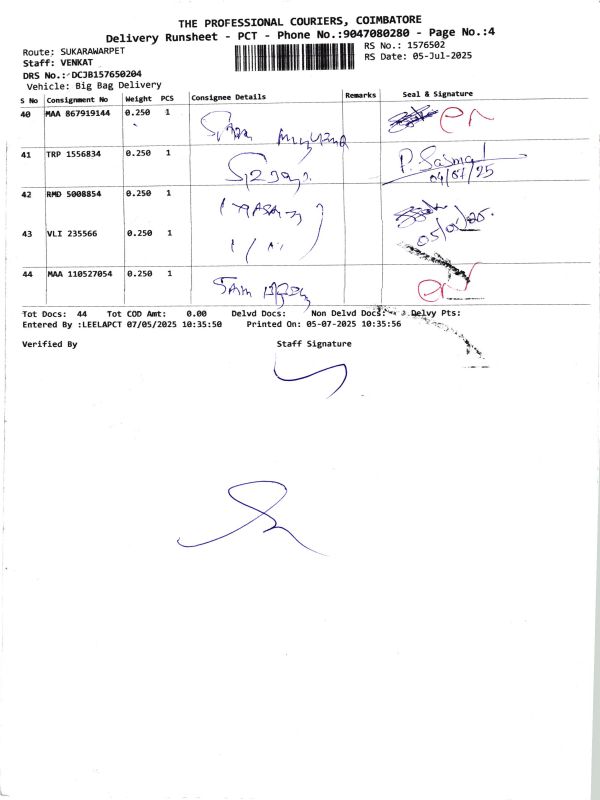 THE PROFESSIONAL COURIERS, COIMBATORE
Delivery Runsheet - PCT - Phone No.:9047080280 - Page No.:4
Route: SUKARAWARPET
RS No.: 1576502
Staff: VENKAT
RS Date: 05-Jul-2025
DRS No.: DCJB157650204
Vehicle: Big Bag Delivery
S No Consignment No Weight PCS Consignee Details Remarks Seal & Signature
40 MAA 867919144 0.250 1
41 TRP 1556834 0.250 1
04/07/25
42 RMD 5008854 0.250 1
43 VLI 235566 0.250 1
44 MAA 110527054 0.250 1
Tot Docs: 44 Tot COD Amt: 0.00 Delvd Docs: Non Delvd Docs: Delvy Pts:
Entered By :LEELAPCT 07/05/2025 10:35:50 Printed On: 05-07-2025 10:35:56
Verified By Staff Signature